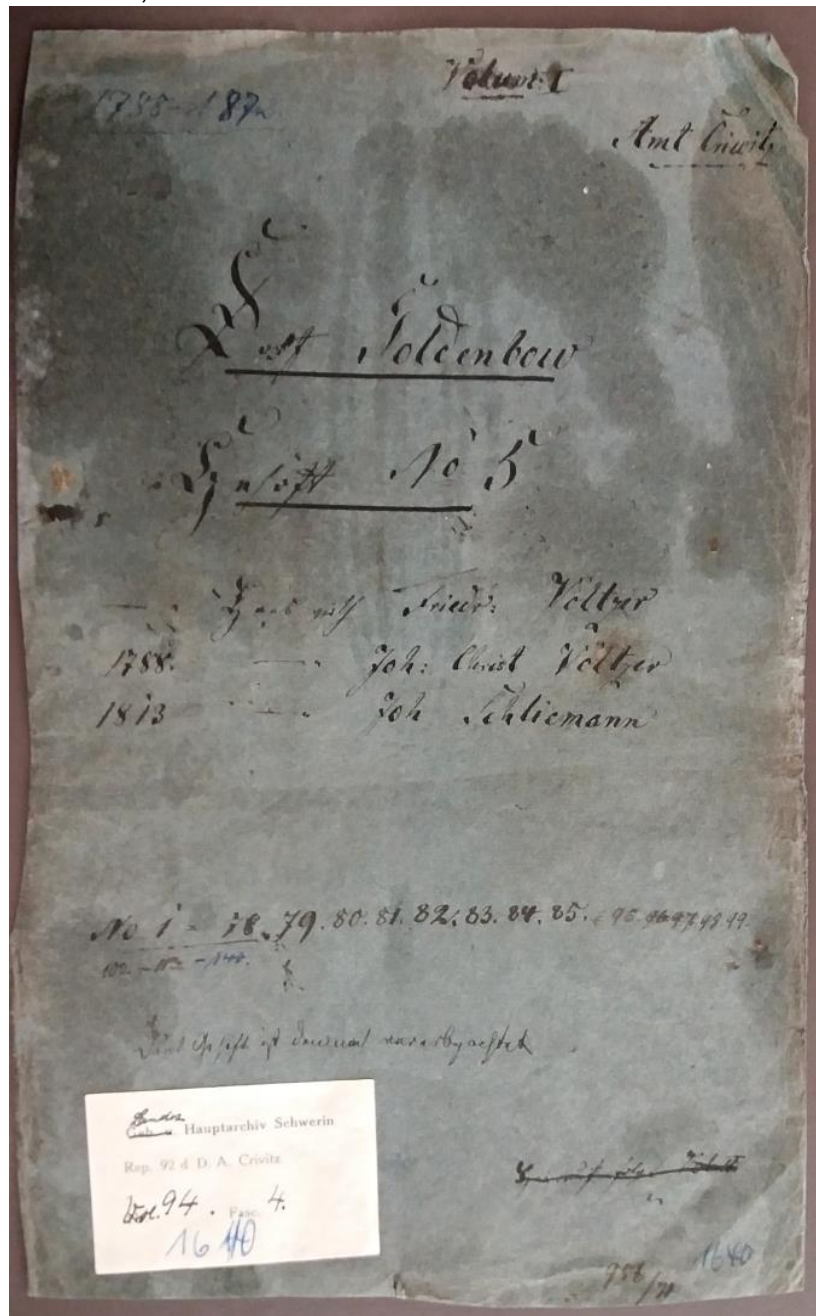 Volum: I
1788-187
Amt Crivitz
Dorf Goldenbow
Gehöft No 5
Hauswirth Friedr: Völtzer
1788. — Joh: Christ Völtzer
1813 — Joh Schliemann
No 1 - 78. 79. 80. 81. 82. 83. 84. 85. 95. 96. 97. 98. 99.
Dies Gehöft ist vererbpachtet
Landes
Hauptarchiv Schwerin
Rep. 92 d D. A. Crivitz
Vol. 94. Fasc. 4.
1640
1640